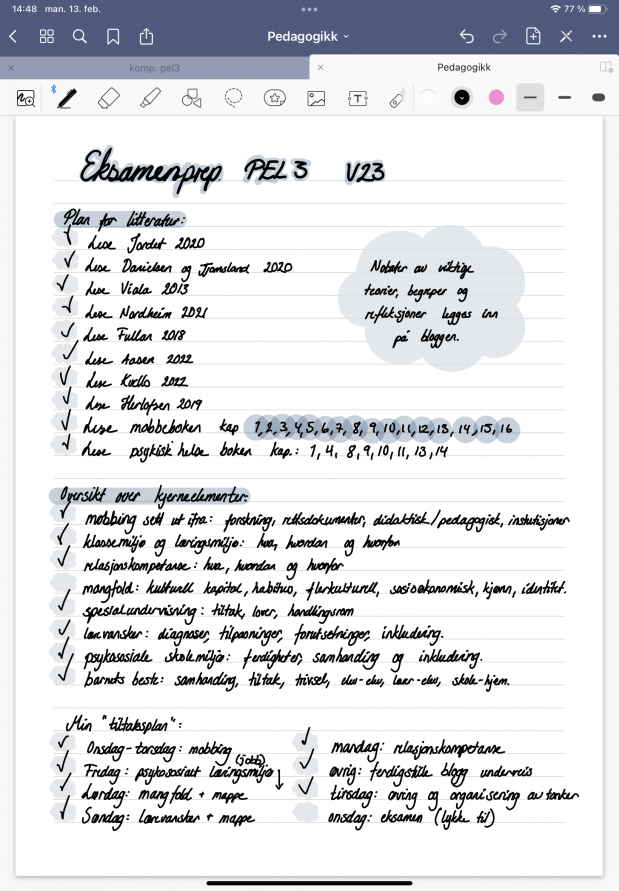 14:48 man. 13. feb.
77 %
Pedagogikk
komp. pel3
Pedagogikk
Eksamenprep PEL3 V23
Plan for litteratur:
Lese Jordet 2020
Lese Danielsen og Tjomsland 2020
Lese Viala 2013
Lese Nordheim 2021
Lese Fullan 2018
Lese Aasen 2022
Lese Kvello 2022
Lese Herlofsen 2019
Lese mobbeboken kap 1,2,3,4,5,6,7,8,9,10,11,12,13,14,15,16
Lese psykisk helse boken kap.: 1, 4, 8, 9, 10, 11, 13, 14
Notater av viktige
teorier, begreper og
refleksjoner legges inn
på bloggen.
Oversikt over kjerneelementer:
mobbing sett ut ifra: forskning, rettsdokumenter, didaktisk/pedagogisk, institusjoner
klassemiljø og læringsmiljø: hva, hvordan og hvorfor
relasjonskompetanse: hva, hvordan og hvorfor
mangfold: kulturell kapital, habitus, flerkulturell, sosioøkonomisk, kjønn, identitet.
spesialundervisning: tiltak, lover, handlingsrom
lærevansker: diagnoser, tilpasninger, forutsetninger, inkludering.
psykososiale skolemiljø: ferdigheter, samhandling og inkludering.
barnets beste: samhandling, tiltak, trivsel, elev-elev, lærer-elev, skole-hjem.
Min "tiltaksplan":
Onsdag-torsdag: mobbing
Fredag: psykososialt læringsmiljø (jobb)
Lørdag: mangfold + mappe
Søndag: lærevansker + mappe
mandag: relasjonskompetanse
øvrig: ferdigstille blogg underveis
tirsdag: øving og organisering av tanker
onsdag: eksamen (lykke til)